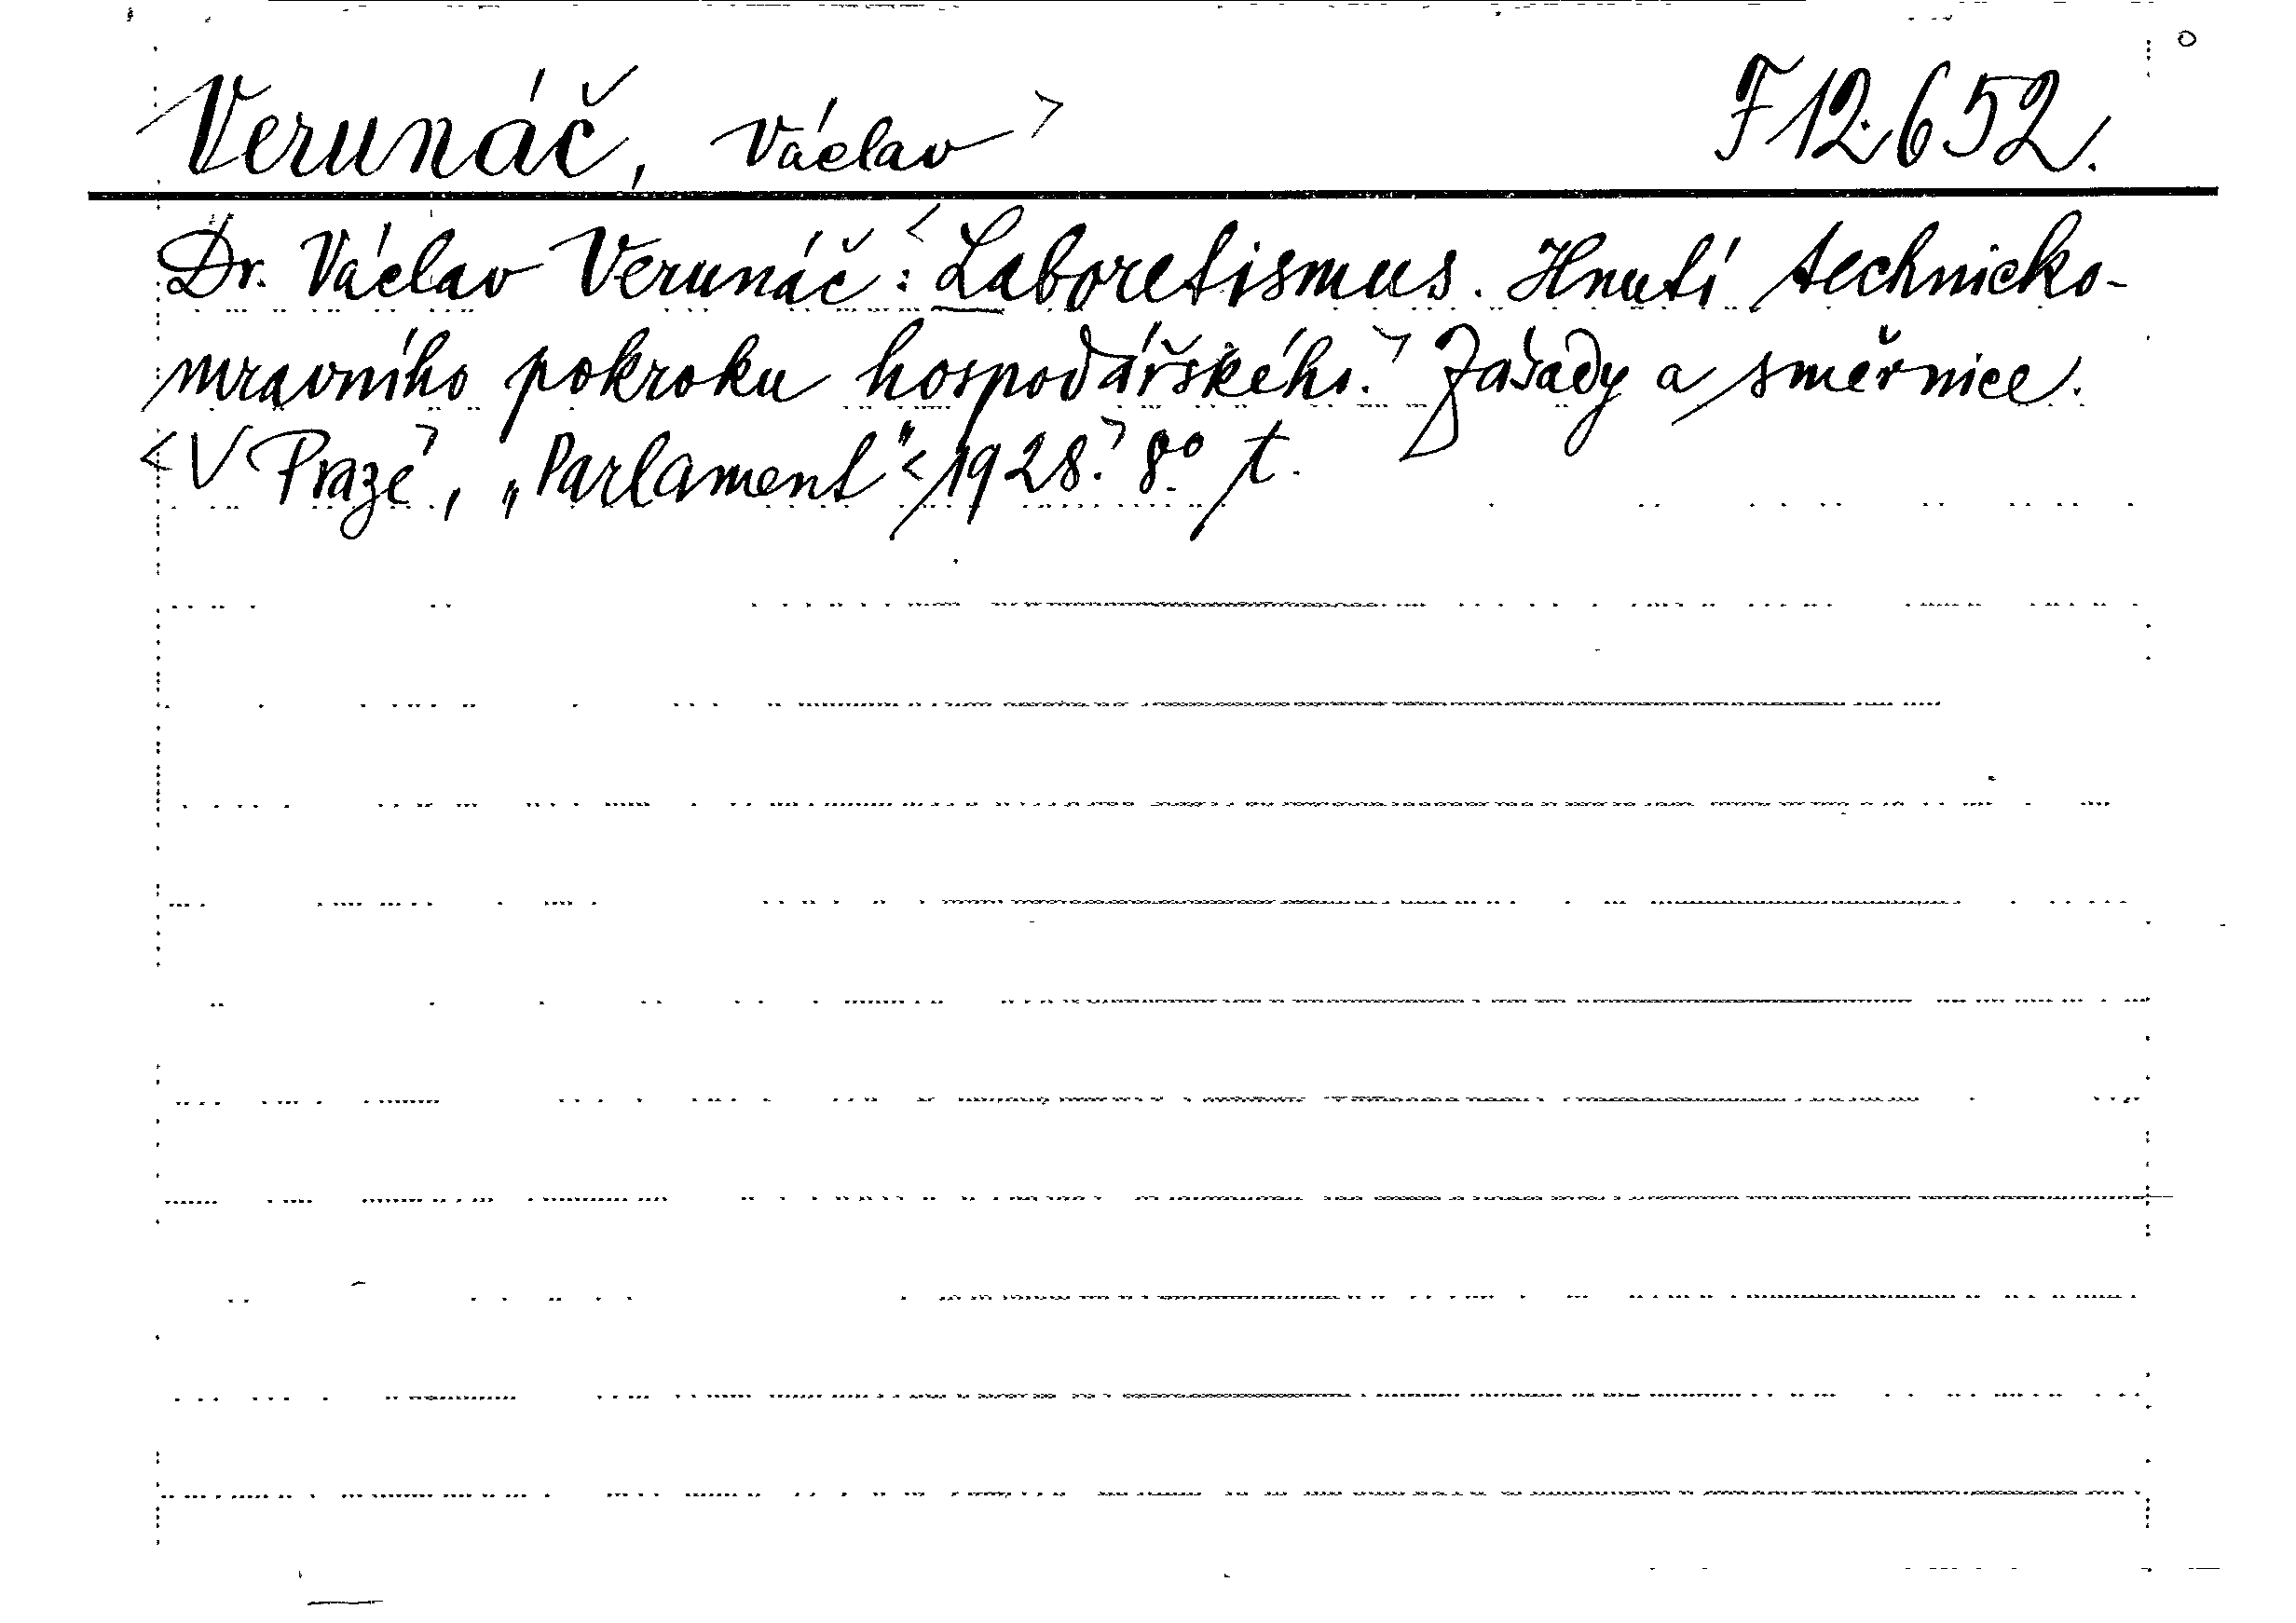 Verunáč, Václav> F 12.652.
Dr. Václav Verunáč: <Laboretismus. Hnutí technicko-
mravního pokroku hospodářského.> Zásady a směrnice.
<V Praze>, „Parlament" <1928.> 8° t.